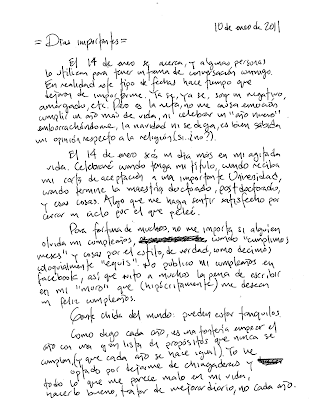 10 de enero de 2011
= Días importantes =
El 14 de enero se acerca, y algunas personas
lo utilizan para tener un tema de conversación conmigo.
En realidad este tipo de fechas hace tiempo que
dejaron de importarme. Ya se, ya se, soy un negativo,
amargado, etc. Pero es la neta, no me causa emoción
cumplir un año más de vida, ni celebrar un "año nuevo"
emborrachándome, la navidad ni se diga, es bien sabida
mi opinión respecto a la religión (si, ¿no?).
El 14 de enero será un día más en mi agitada
vida. Celebraré cuando tenga mi título, cuando reciba
mi carta de aceptación a una importante Universidad,
cuando termine la maestría, doctorado, postdoctorado,
y esas cosas. Algo que me haga sentir satisfecho por
cerrar un ciclo por el que peleé.
Para fortuna de muchos, no me importa si alguien
olvida mi cumpleaños, cuando "cumplimos
meses" y cosas por el estilo, de verdad, como decimos
coloquialmente "equis". No publico mi cumpleaños en
facebook, así que evito a muchos la pena de escribir
en mi "muro" que (hipócritamente) me desean
un feliz cumpleaños.
Gente chida del mundo: pueden estar tranquilos.
Como digo cada año, es una tontería empezar el
año con una gran lista de propósitos que nunca se
cumplen (y que cada año se hace igual). Yo he
optado por dejarme de chingaderas y
todo lo que me parece malo en mi vida,
hacerlo bueno, tratar de mejorar diario, no cada año.